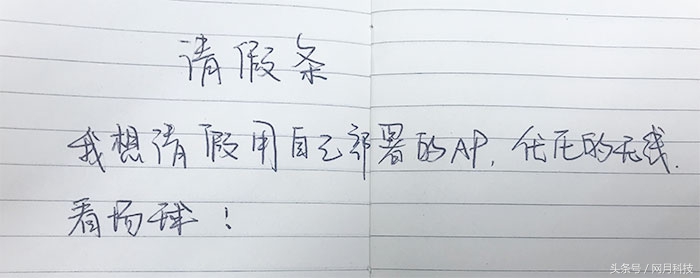 请假条
我想请假用自己部署的AP, 优化的无线.
看场球!
头条号 / 网月科技